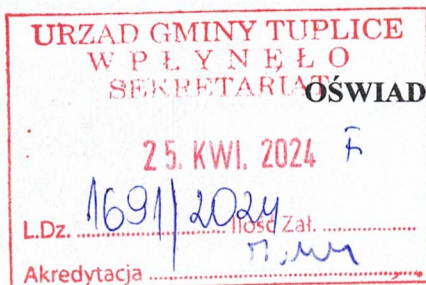 URZĄD GMINY TUPLICE
WPŁYNĘŁO
SEKRETARIAT
OŚWIAD
25. KWI. 2024
L.Dz. 1691/2024 Ilość Zał.
Akredytacja